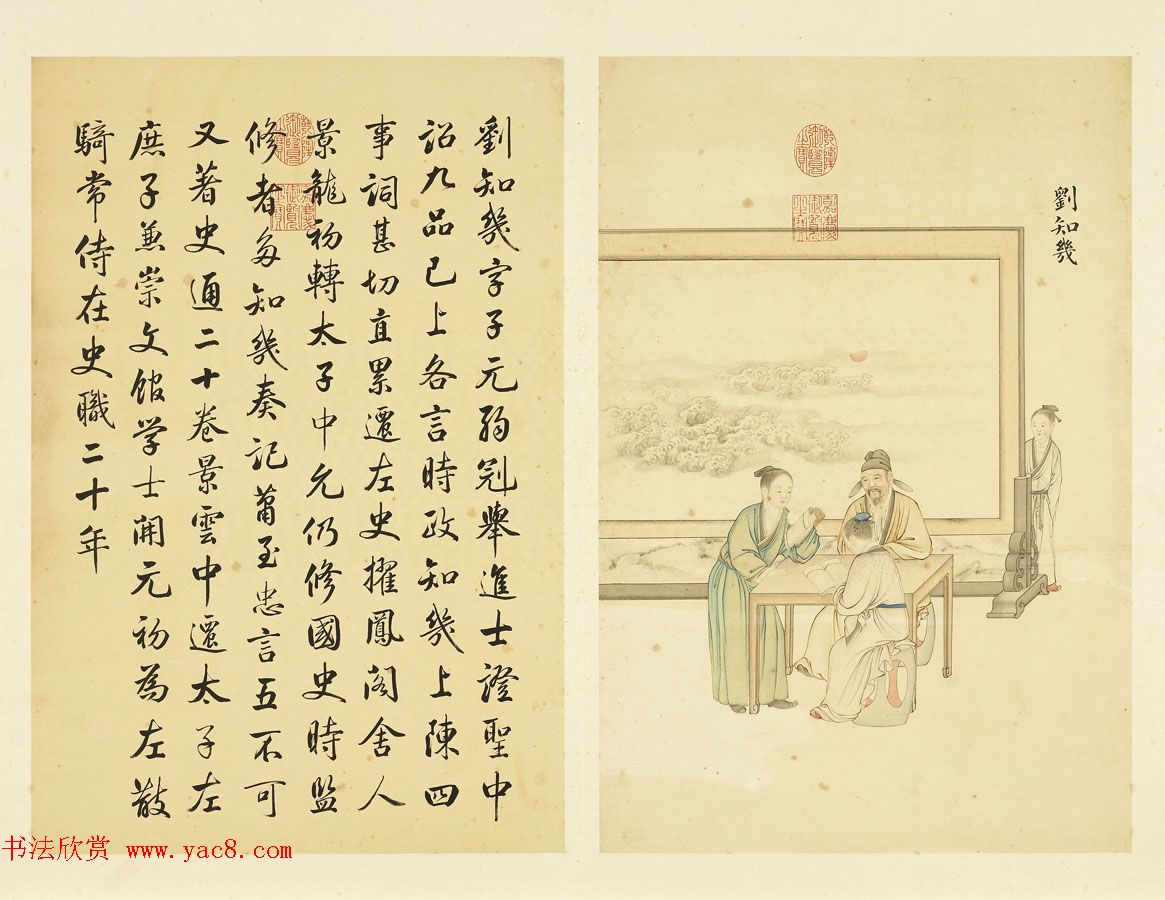 劉知幾
乾隆御覽之寶
嘉慶御覽之寶
劉知幾字子元弱冠舉進士證聖中
詔九品已上各言時政知幾上陳四
事詞甚切直累遷左史擢鳳閣舍人
景龍初轉太子中允仍修國史時監
修者多知幾奏記蕭至忠言五不可
又著史通二十卷景雲中遷太子左
庶子兼崇文館学士開元初為左散
騎常侍在史職二十年
乾隆御覽之寶
嘉慶御覽之寶
书法欣赏 www.yac8.com